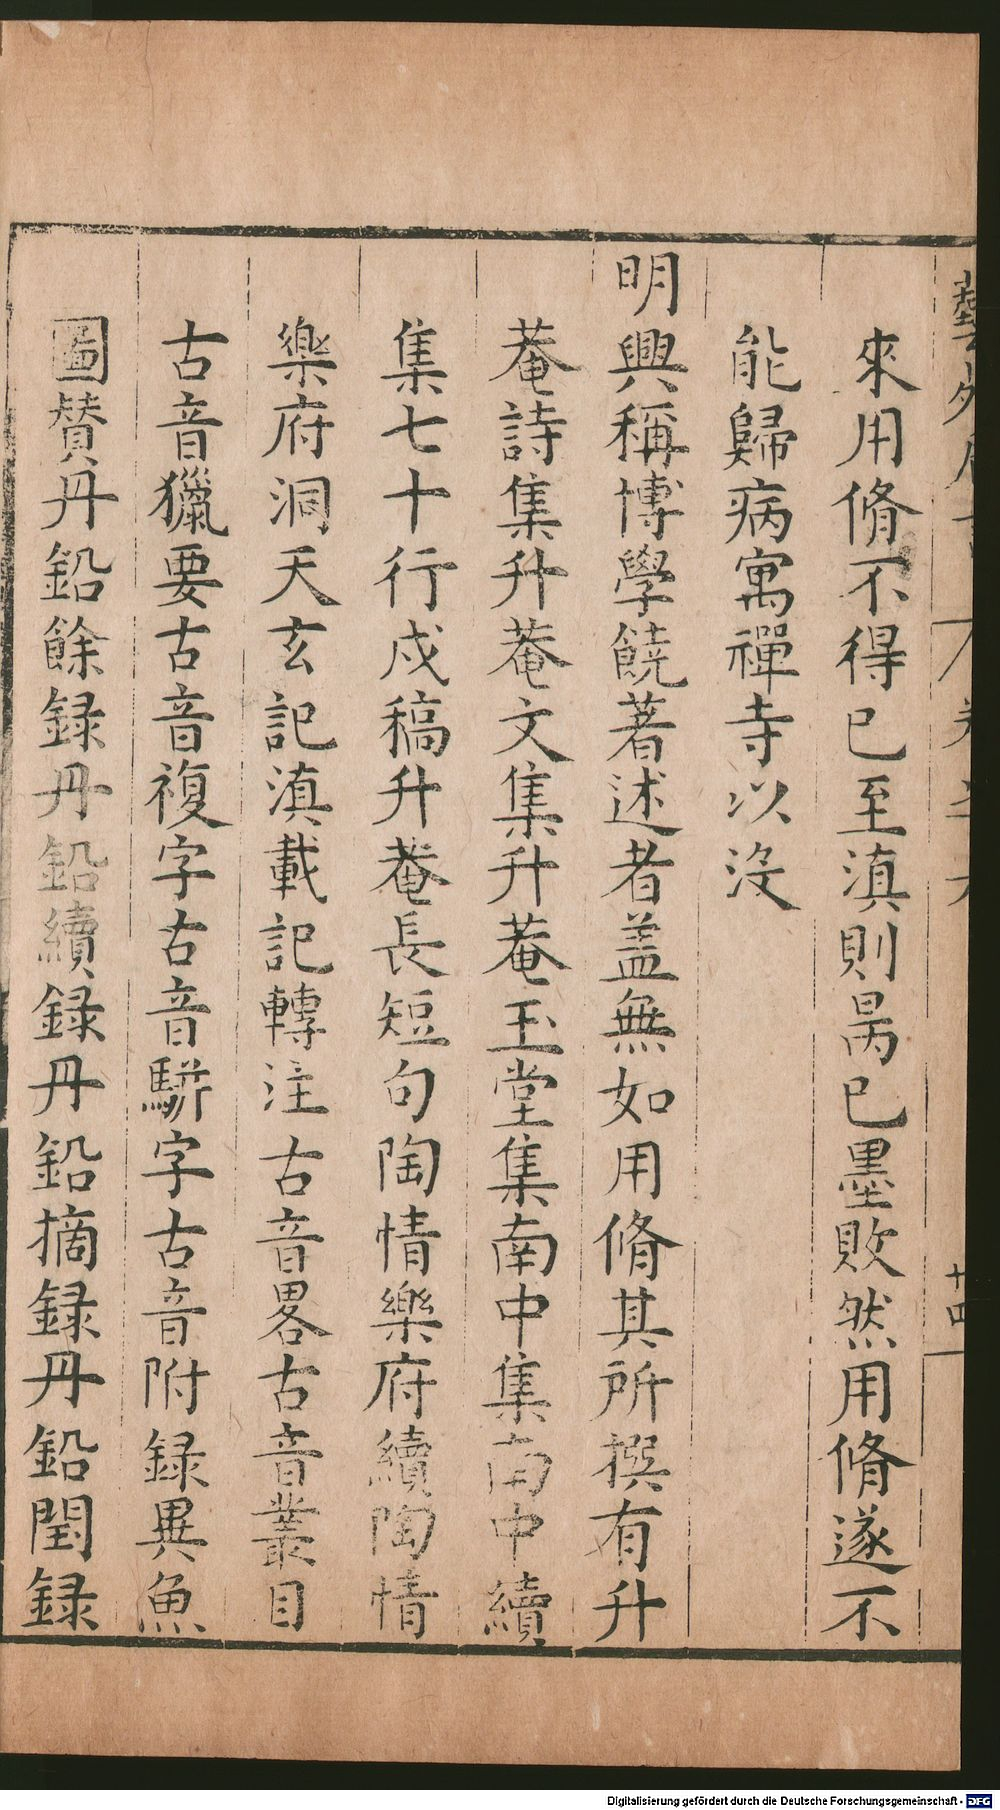 來用脩不得已至滇則昺已墨敗然用脩遂不
能歸病寓禪寺以沒
明興稱博學饒著述者盖無如用脩其所撰有升
菴詩集升菴文集升菴玉堂集南中集南中續
集七十行戍稿升菴長短句陶情樂府續陶情
樂府洞天玄記滇載記轉注古音畧古音叢目
古音獵要古音複字古音駢字古音附録異魚
圖賛丹鉛餘録丹鉛續録丹鉛摘録丹鉛閏録
廿四
Digitalisierung gefördert durch die Deutsche Forschungsgemeinschaft - DFG